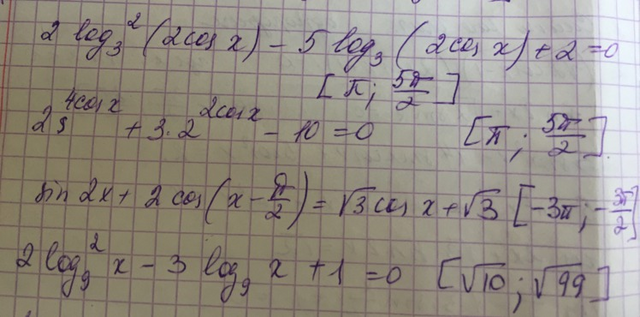 2 log₃² (2cos x) − 5 log₃ (2cos x) + 2 = 0
[π; 5π/2]
2⁴ᶜᵒˢ ˣ + 3·2²ᶜᵒˢ ˣ − 10 = 0 [π; 5π/2].
sin 2x + 2 cos(x − π/2) = √3 cos x + √3 [−3π; −3π/2]
2 log₉² x − 3 log₉ x + 1 = 0 [√10; √99]